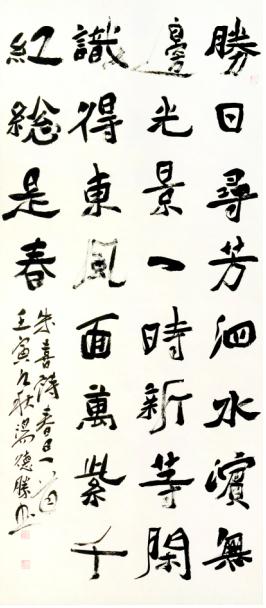 勝日尋芳泗水濱無
邊光景一時新等閑
識得東風面萬紫千
紅總是春
朱熹詩春日一首
壬寅之秋
德勝書